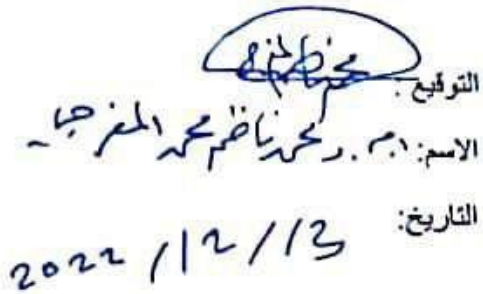 التوقيع:
الاسم: ا.م.د محمد ناظم محمد المفرجي
التاريخ: 2022/12/13